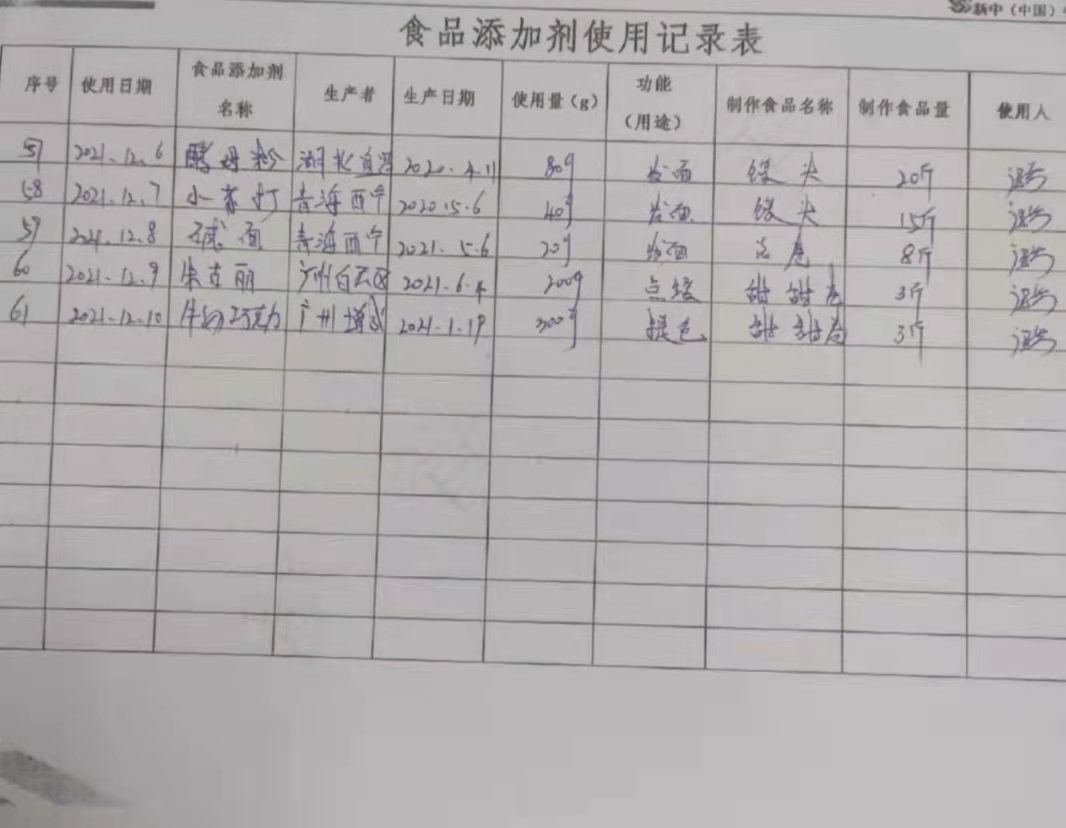 新中（中国）
食品添加剂使用记录表
序号 使用日期 食品添加剂名称 生产者 生产日期 使用量（g） 功能（用途） 制作食品名称 制作食品量 使用人
57 2021.12.6 酵母粉 湖北宜 2020.4.11 80g 发面 馒头 20斤
58 2021.12.7 小苏打 青海西宁 2020.5.6 40g 发面 馒头 15斤
59 2021.12.8 碱面 青海西宁 2021.5.6 20g 发面 花卷 8斤
60 2021.12.9 朱古丽 广州白云区 2021.6.4 200g 点缀 甜甜 3斤
61 2021.12.10 牛奶巧克力 广州增 2021.1.19 300g 提色 甜甜 3斤